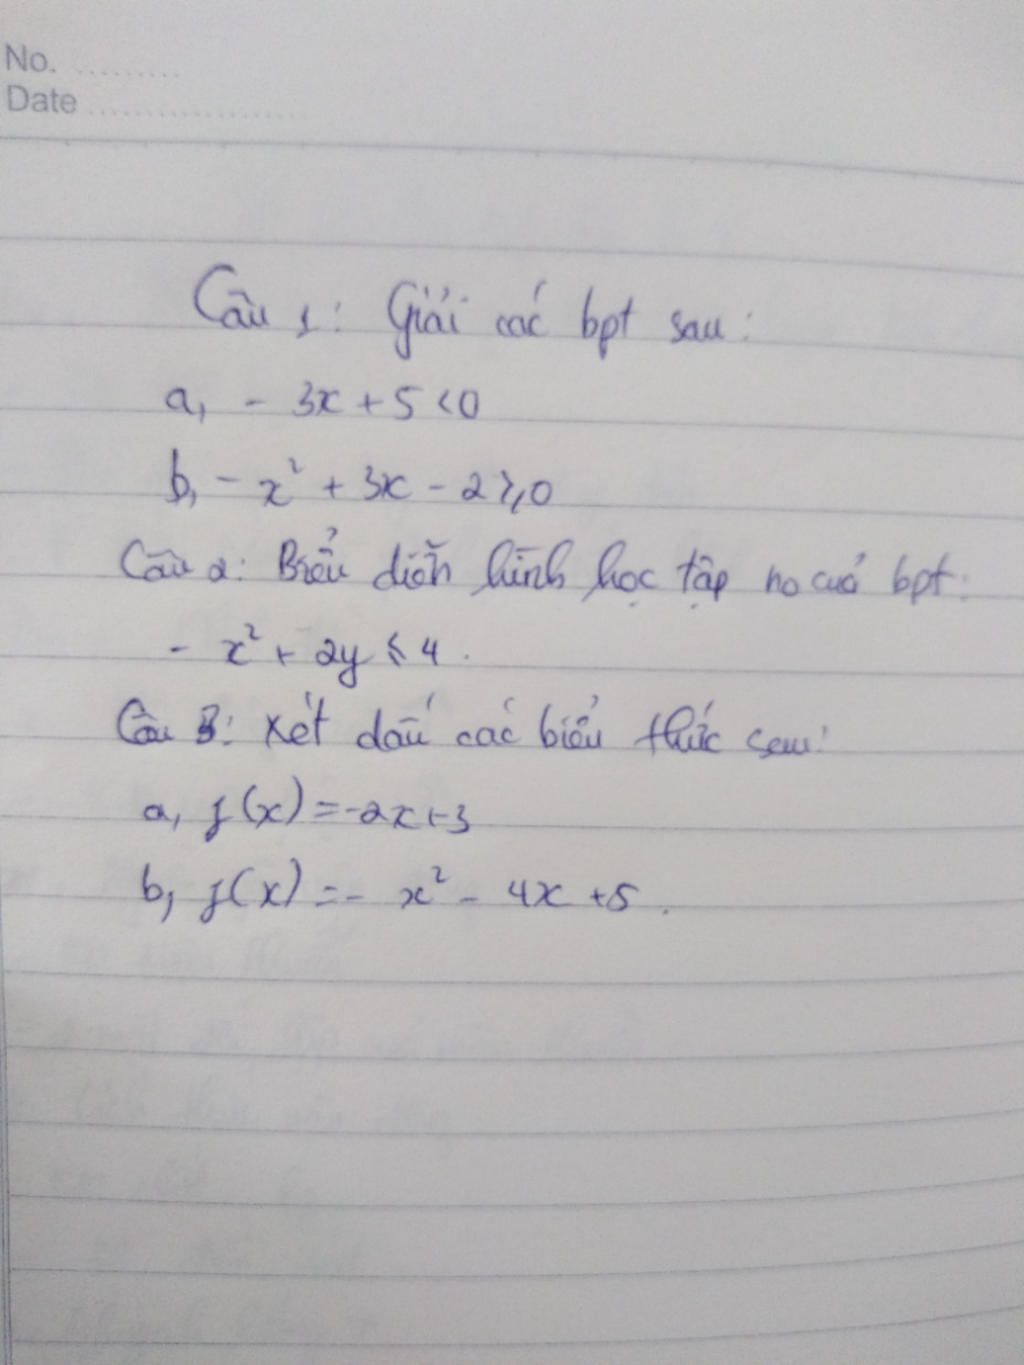 No. .........
Date ..................
Câu 1: Giải các bpt sau:
a, - 3x + 5 < 0
b, - x² + 3x - 2 ≥ 0
Câu 2: Biểu diễn hình học tập no của bpt:
- x² + 2y ≤ 4.
Câu 3: Xét dấu các biểu thức sau:
a, f(x) = -2x+3
b, f(x) = - x² - 4x + 5.